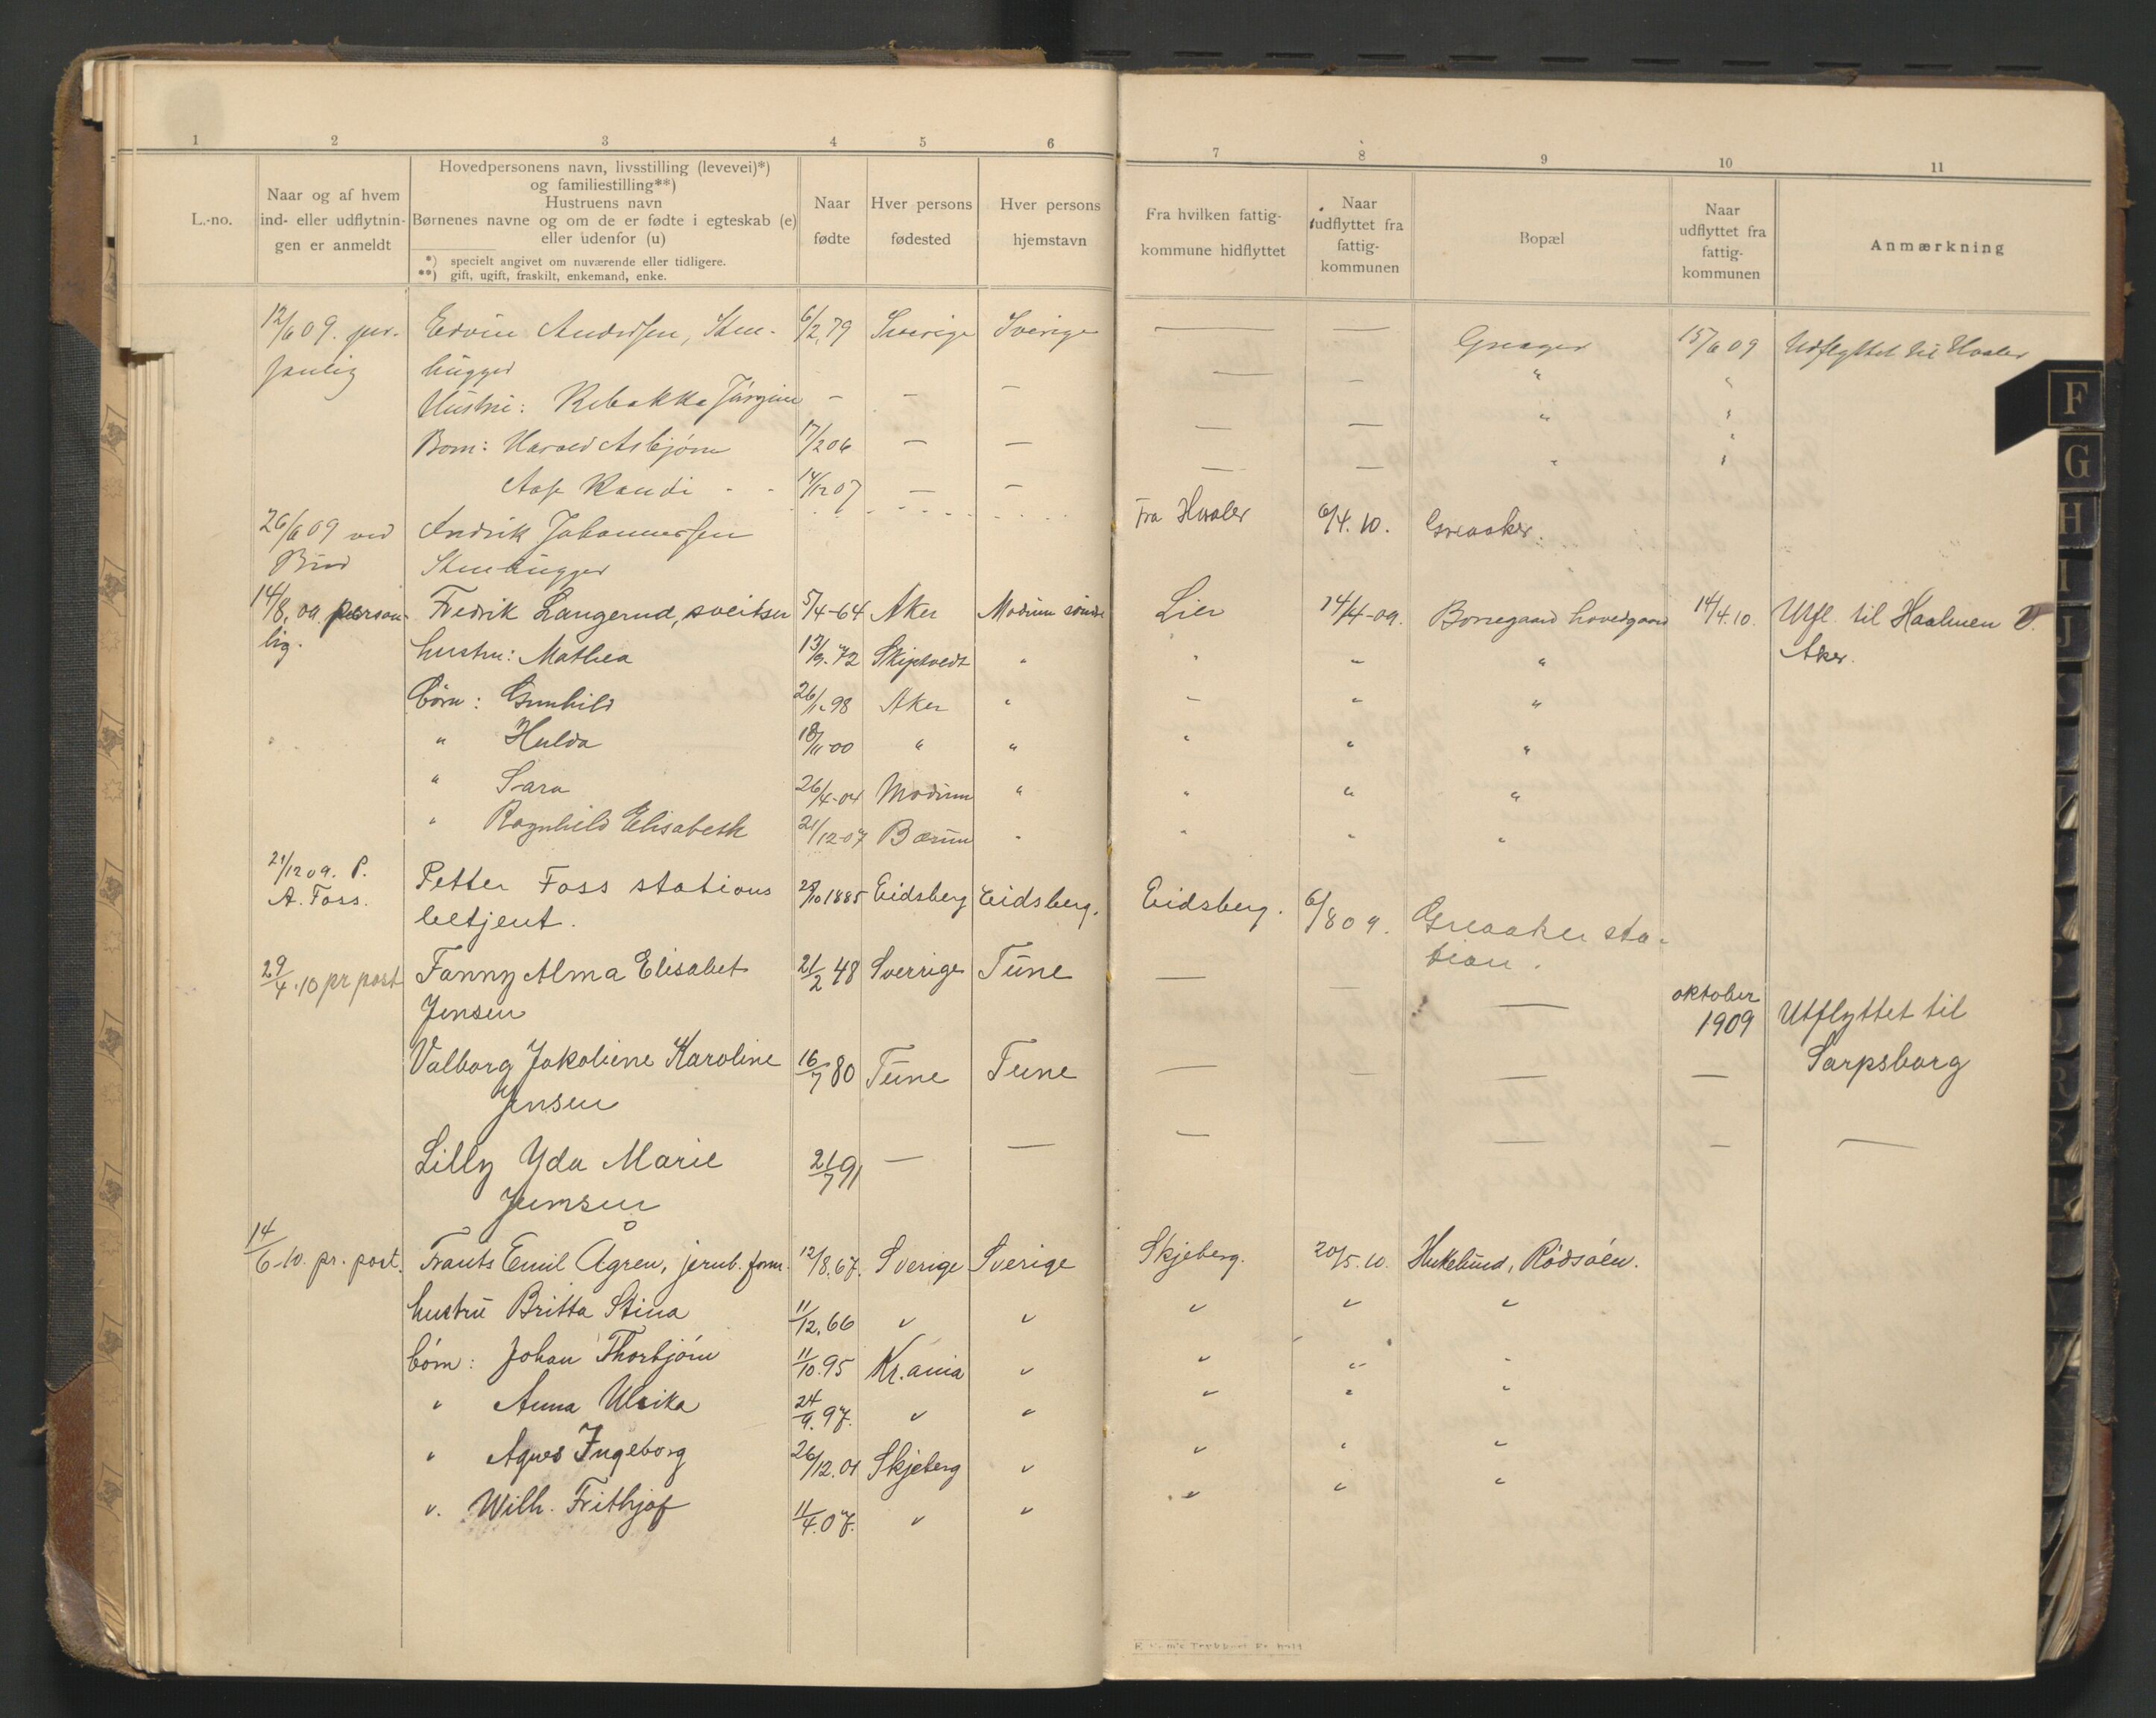 1 2 3 4 5 6 7 8 9 10 11
L.-no.
Naar og af hvem
ind- eller udflytnin-
gen er anmeldt
Hovedpersonens navn, livsstilling (levevei)*)
og familiestilling**)
Hustruens navn
Børnenes navne og om de er fødte i egteskab (e)
eller udenfor (u)
*) specielt angivet om nuværende eller tidligere.
**) gift, ugift, fraskilt, enkemand, enke.
Naar
fødte
Hver persons
fødested
Hver persons
hjemstavn
Fra hvilken fattig-
kommune hidflyttet
Naar
udflyttet fra
fattig-
kommunen
Bopæl
Naar
udflyttet fra
fattig-
kommunen
Anmærkning
12/6 09. per- Edvin Andersen, Sten- 6/2 79 Sverige Sverige — — 15/6 09 Udflyttet til Hvaler
sonlig hugger — — " "
Hustru: Rebekka — — — " "
Born: Harald Asbjørn 17/2 06 — — — — " "
Aase Randi " " 14/12 07 — — — —
26/6 09 ved Johannessen Fra Hvaler 6/4. 10. Greaaker.
Bud Stenhugger
14/8. 09. person- Fredrik Langerud, sveitser 5/4-64 Aker Modum Lier 14/4-09. Borregaard hovedgaard 14/4.10. Utfl. til
lig. hustru: Mathea 13/9.72 Skiptvedt " " " " Aker.
børn: Gunhild 26/1-98 Aker " " " "
" Hulda 18/11-00 " " " " "
" Sara 26/4-04 Modum " " " "
" Ragnhild Elisabeth 21/12-07 Bærum " " " "
21/12 09. P. Petter Foss stations 28/10 1885 Eidsberg Eidsberg. Eidsberg. 6/8 09. Greaaker sta-
A. Foss. betjent. tion.
29/4.10 pr post Fanny Alma Elisabet 21/2 48 Sverrige Tune — — — oktober
Jensen 1909 Utflyttet til
Valborg Jakobine Karoline 16/7 80 Tune Tune — — — — Sarpsborg
Jensen
Lilly Yda Marie 21/7 91 — — — — — —
Jensen
14/6-10. pr. post. Frants Emil Ågren, jernb. form. 12/8.67. Sverige Sverige Skjeberg. 20/5.10. Rødsøen.
hustru Britta Stina 11/12.66 " " " " "
børn: Johan Thorbjørn 11/10.95 Kr.ania " " " "
" Anna Ulrika 24/9.97. " " " " "
" Agnes Ingeborg 26/12.01 Skjeberg " " " "
". Wilh. Frithjof 11/4.07. " " " " "
F
G
H
I
J